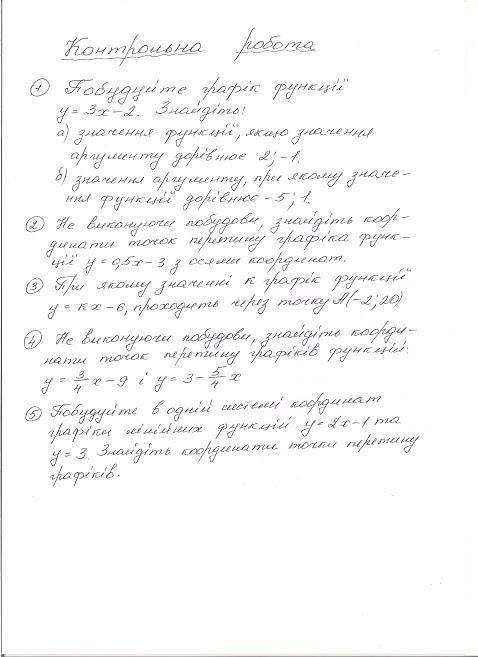 Контрольна робота
1 Побудуйте графік функції
y = 3x – 2. Знайдіть:
а) значення функції, якщо значення
аргументу дорівнює 2; -1.
б) значення аргументу, при якому значе-
ння функції дорівнює -5; 1.
2 Не виконуючи побудови, знайдіть коор-
динати точок перетину графіка функ-
ції y = 0,5x – 3 з осями координат.
3 При якому значенні к графік функції
y = кx – 6, проходить через точку А(-2; 20)
4 Не виконуючи побудови, знайдіть коорди-
нати точок перетину графіків функцій:
y = 3/4 x – 9 і y = 3 – 5/4 x
5 Побудуйте в одній системі координат
графіки лінійних функцій y = 2x – 1 та
y = 3. Знайдіть координати точки перетину
графіків.